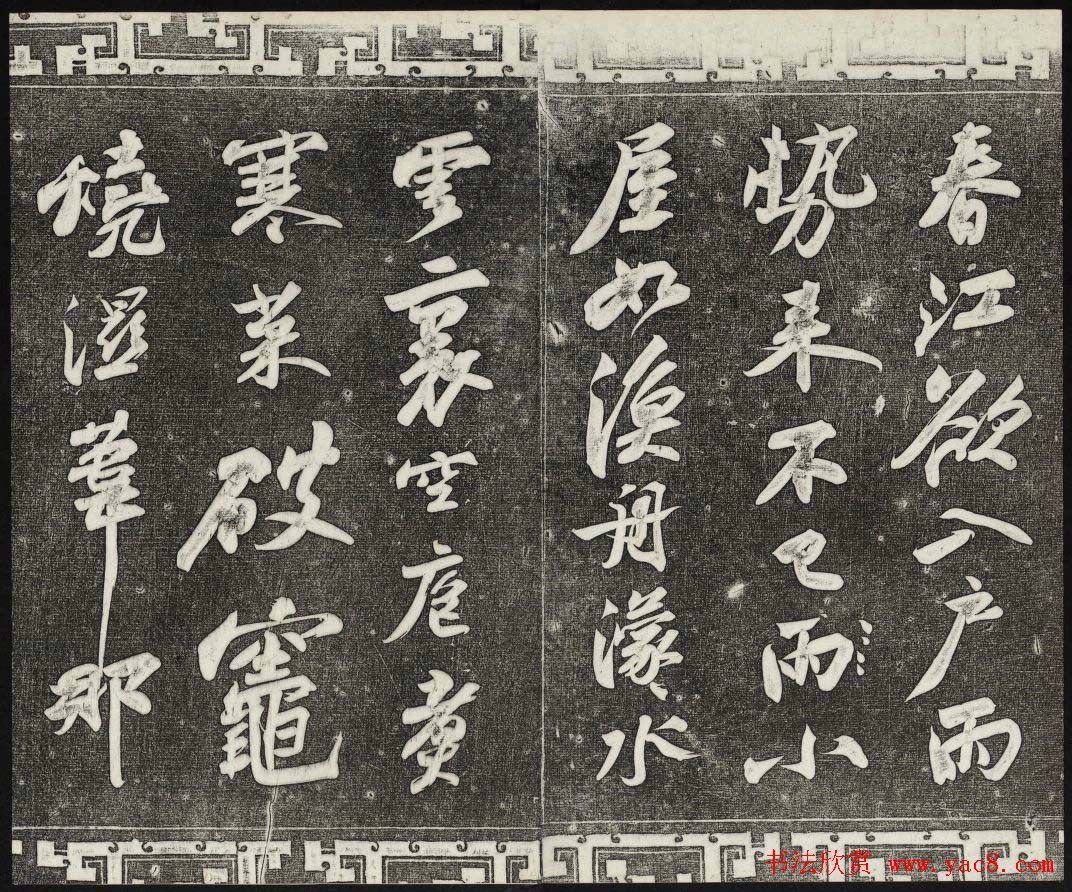 春江欲入户雨
勢来不已雨小
屋如漁舟濛〻水
雲裏空庖煮
寒菜破竈
燒濕葦那
书法欣赏 www.yac8.com